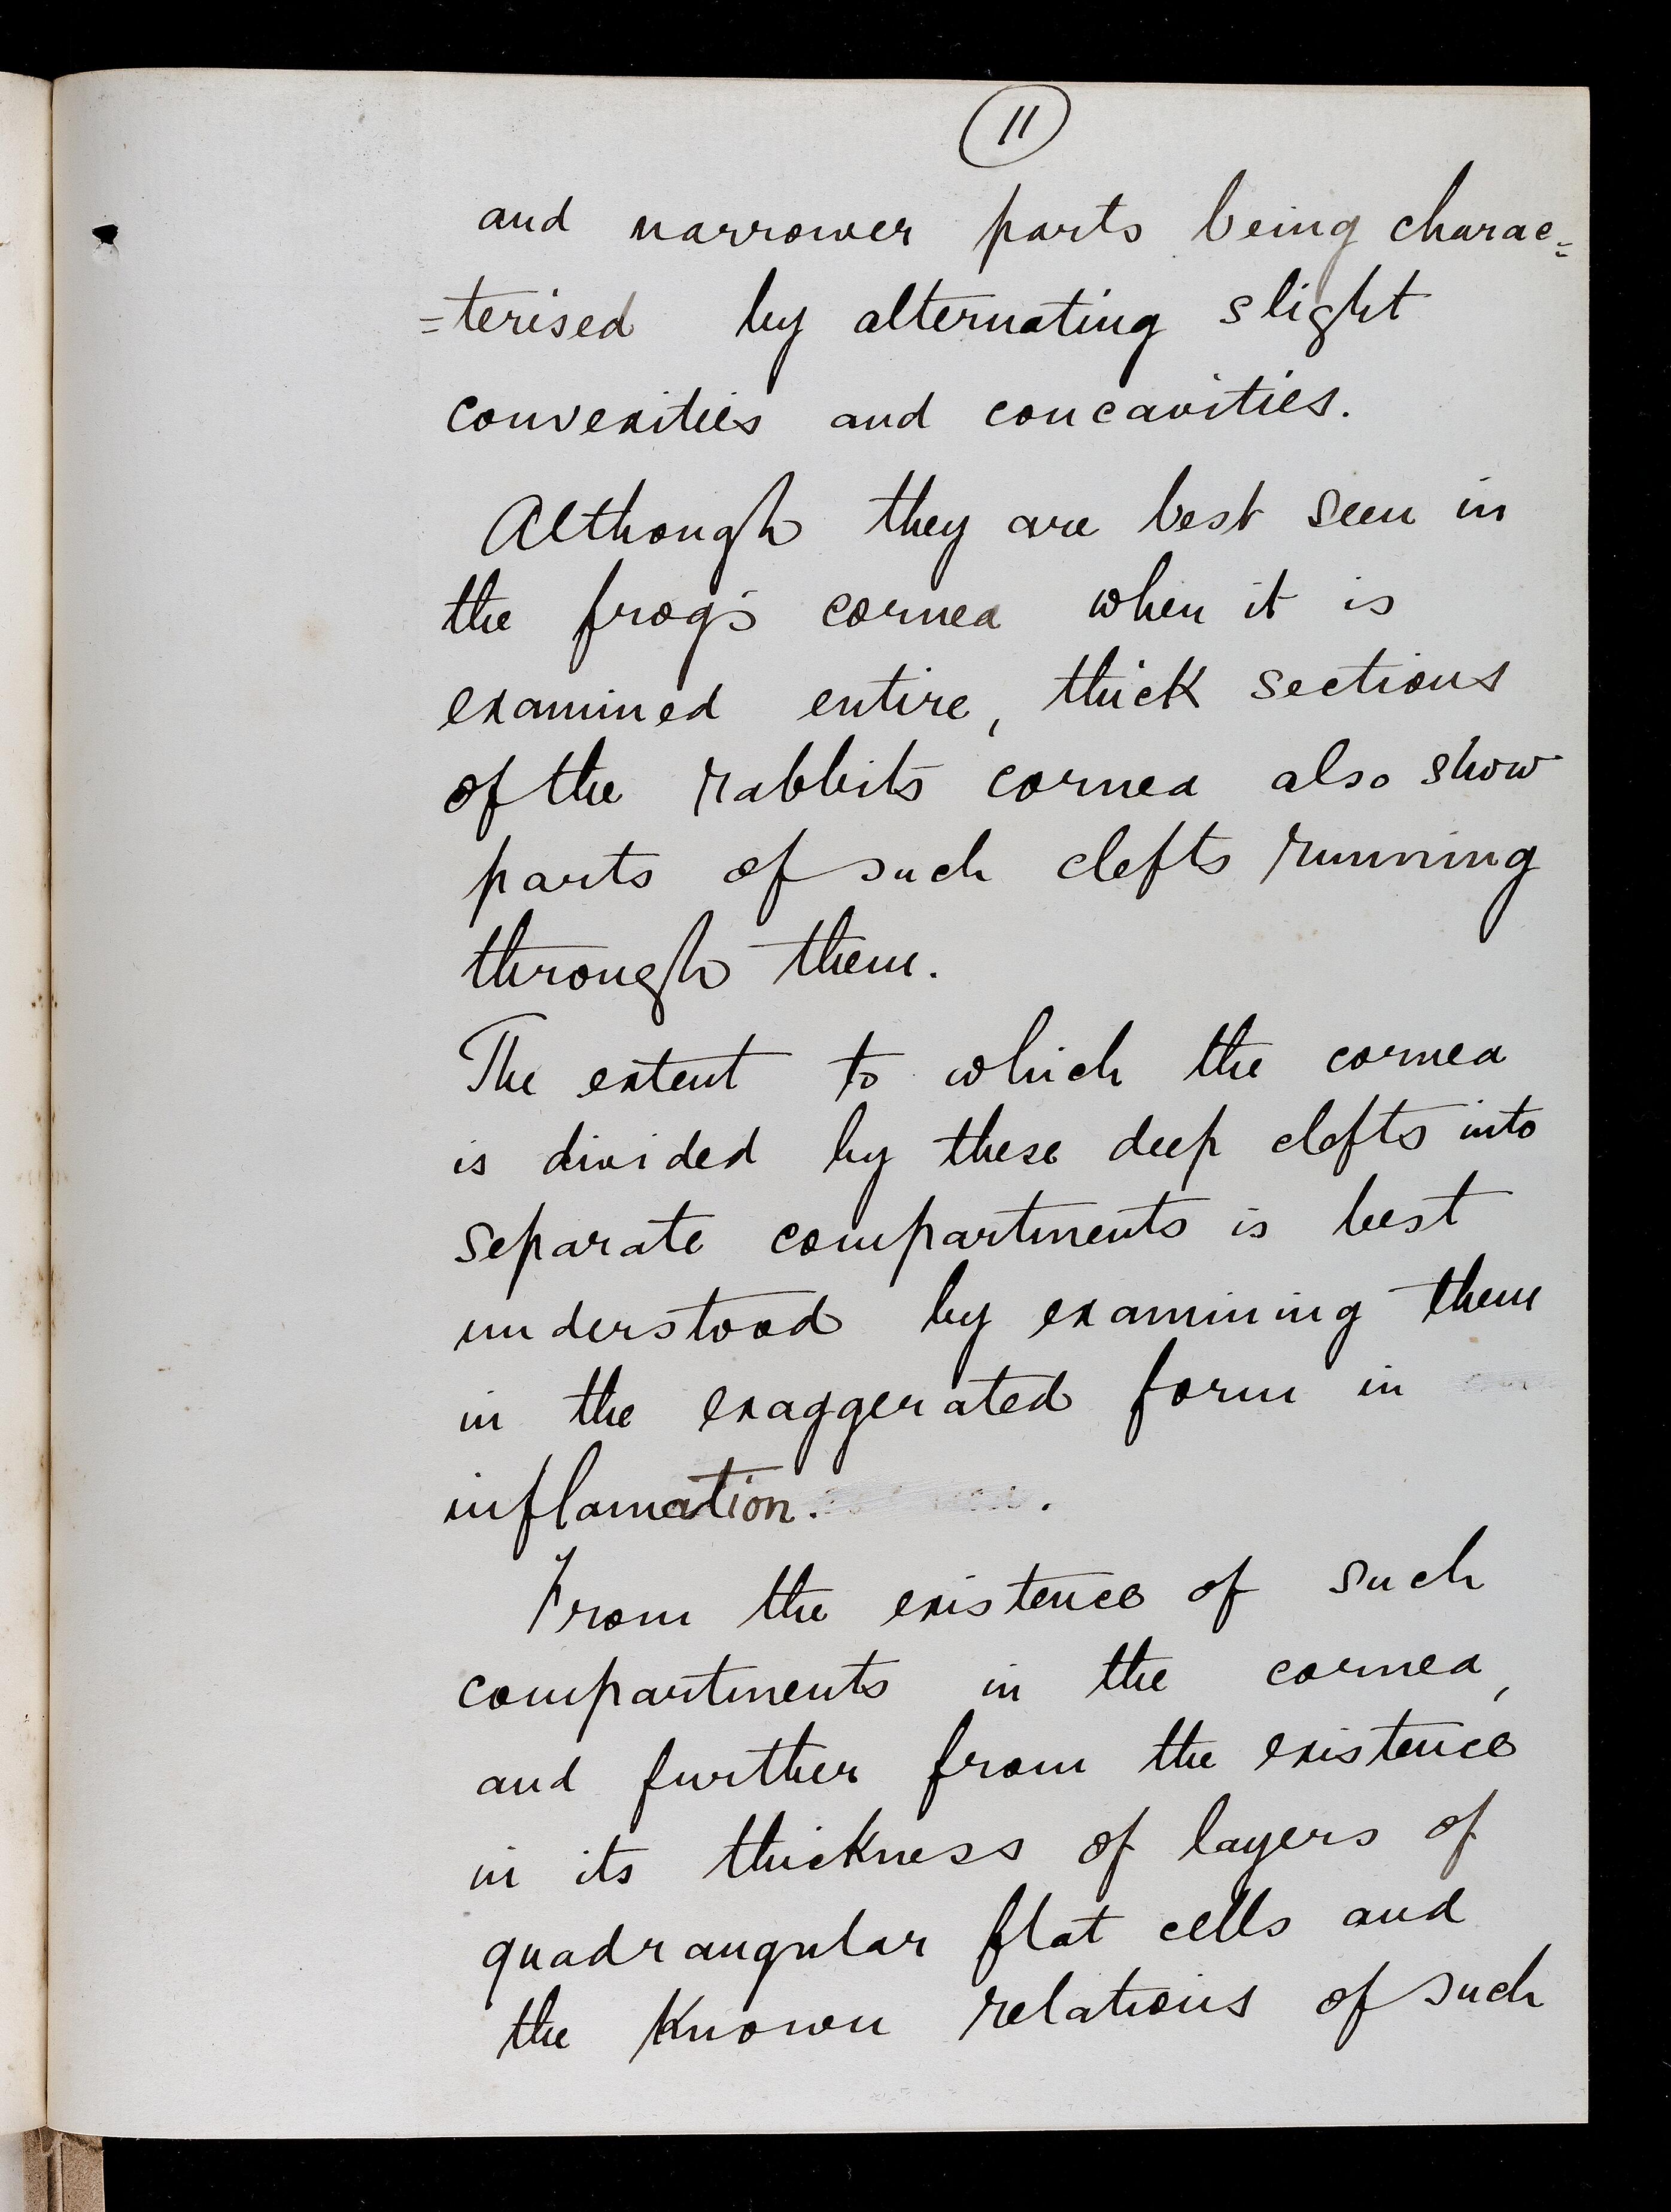 11
and narrower parts being charac=
=terised by alternating slight
convexities and concavities.
Although they are best seen in
the frog's cornea when it is
examined entire, thick sections
of the rabbits cornea also show
parts of such clefts running
through them.
The extent to which the cornea
is divided by these deep clefts into
separate compartments is best
understood by examining them
in the exaggerated form in
inflamation. .
From the existence of such
compartments in the cornea,
and further from the existence
in its thickness of layers of
quadrangular flat cells and
the Known relations of such